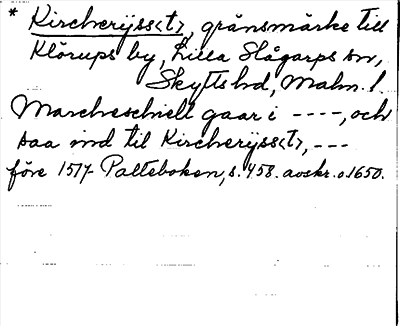 * Kircherijss<t>, gränsmärke till
Klörups by, Lilla Slågarps sn,
Skytts hd, Malm. l.
Marcheschiell gaar i ----, och
saa ind til Kircherijss<t>, ---
före 1517 Palteboken, s. 458. avskr. o. 1650.